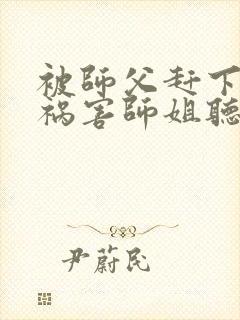 被師父赶下
祸害師姐聽
尹蔚民